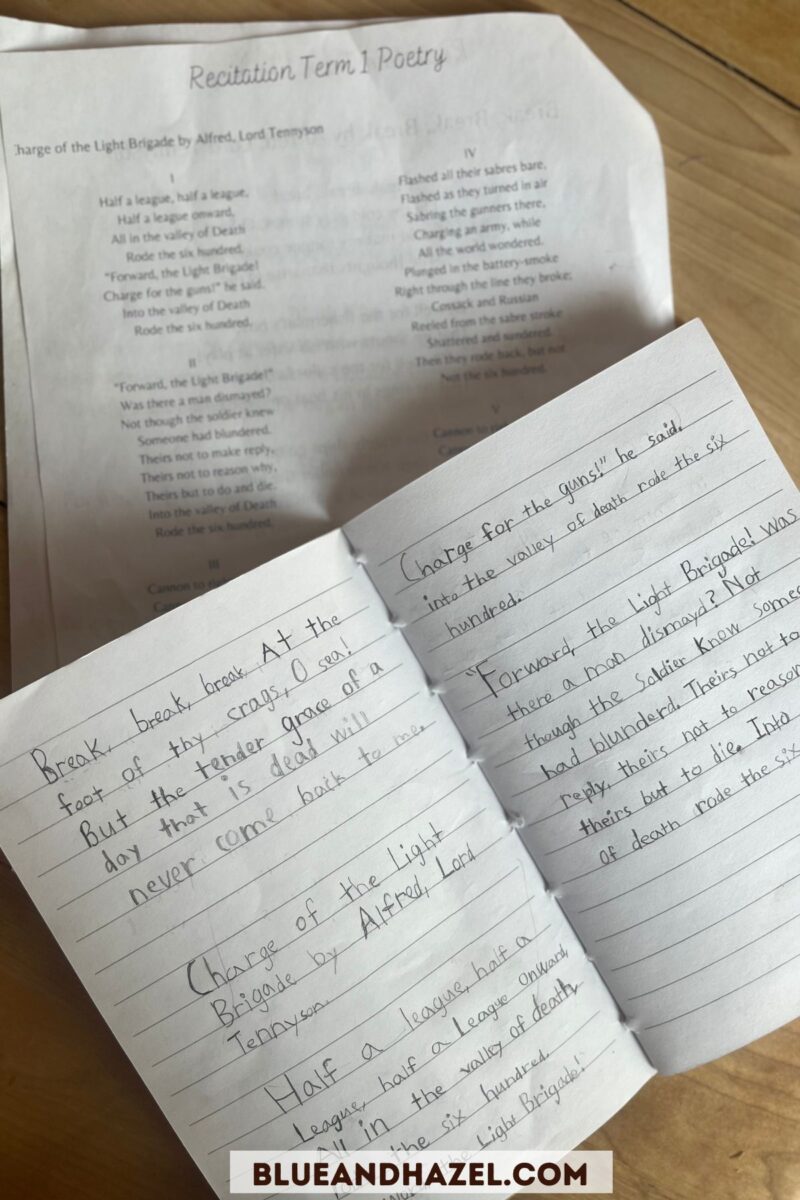 Recitation Term 1 Poetry
Charge of the Light Brigade by Alfred, Lord Tennyson
I
Half a league, half a league,
Half a league onward,
All in the valley of Death
Rode the six hundred.
"Forward, the Light Brigade!
Charge for the guns!" he said.
Into the valley of Death
Rode the six hundred.
II
"Forward, the Light Brigade!"
Was there a man dismayed?
Not though the soldier knew
Someone had blundered.
Theirs not to make reply,
Theirs not to reason why,
Theirs but to do and die.
Into the valley of Death
Rode the six hundred.
III
Cannon to
IV
Flashed all their sabres bare,
Flashed as they turned in air
Sabring the gunners there,
Charging an army, while
All the world wondered.
Plunged in the battery-smoke
Right through the line they broke;
Cossack and Russian
Reeled from the sabre stroke
Shattered and sundered.
Then they rode back, but not
Not the six hundred.
V
Cannon to
Break, break, break At the
foot of thy crags, O sea!
But the tender grace of a
day that is dead will
never come back to me.
Charge of the Light
Brigade by Alfred, Lord
Tennyson.
Half a league, half a
League, half a League onward,
All in the valley of death,
the six hundred.
the Light Brigade!
Charge for the guns!" he said.
into the valley of death rode the six
hundred.
"Forward, the Light Brigade! Was
there a man dismayd? Not
though the Soldier Knew
had blunderd. Theirs not to
reply, theirs not to reason
theirs but to die. Into
of death rode the six
BLUEANDHAZEL.COM